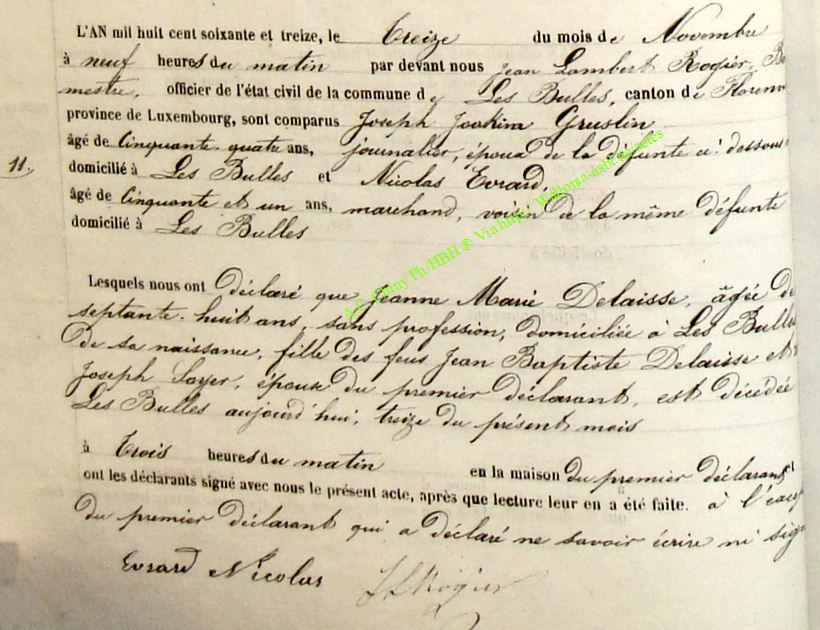 L'AN mil huit cent soixante et treize, le Treize du mois de Novembre
à neuf heures du matin par devant nous Jean Lambert Rogier, Bo
mestre, officier de l'état civil de la commune de Les Bulles, canton de Floren
province de Luxembourg, sont comparus Joseph Joakim Gruslin
âgé de Cinquante-quatre ans, journalier, époux de la défunte ci-dessous
11.
domicilié à Les Bulles et Nicolas Evrard,
âgé de Cinquante et un ans, marchand, voisin de la même défunte
domicilié à Les Bulles
Lesquels nous ont déclaré que Jeanne Marie Delaisse, âgée de
septante-huit ans, sans profession, domiciliée à Les Bulles
de sa naissance, fille des feus Jean Baptiste Delaisse et
Joseph Loyer, épouse du premier déclarant, est décédée
Les Bulles aujourd'hui, treize du présent mois
à Trois heures du matin en la maison du premier déclarant
ont les déclarants signé avec nous le présent acte, après que lecture leur en a été faite. à l'excep
du premier déclarant qui a déclaré ne savoir écrire ni sign
Evrard Nicolas JLRogier